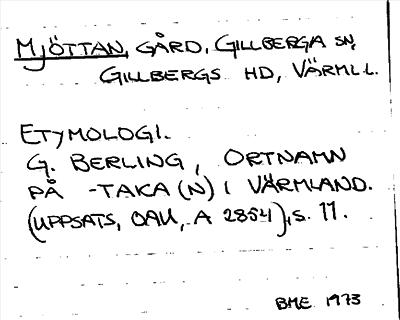 MJÖTTAN, GÅRD, GILLBERGA SN,
GILLBERGS HD, VÄRML.
ETYMOLOGI.
G. BERLING, ORTNAMN
PÅ -TAKA(N) I VÄRMLAND.
(UPPSATS, OAU, A 2854), S. 11.
BME 1973